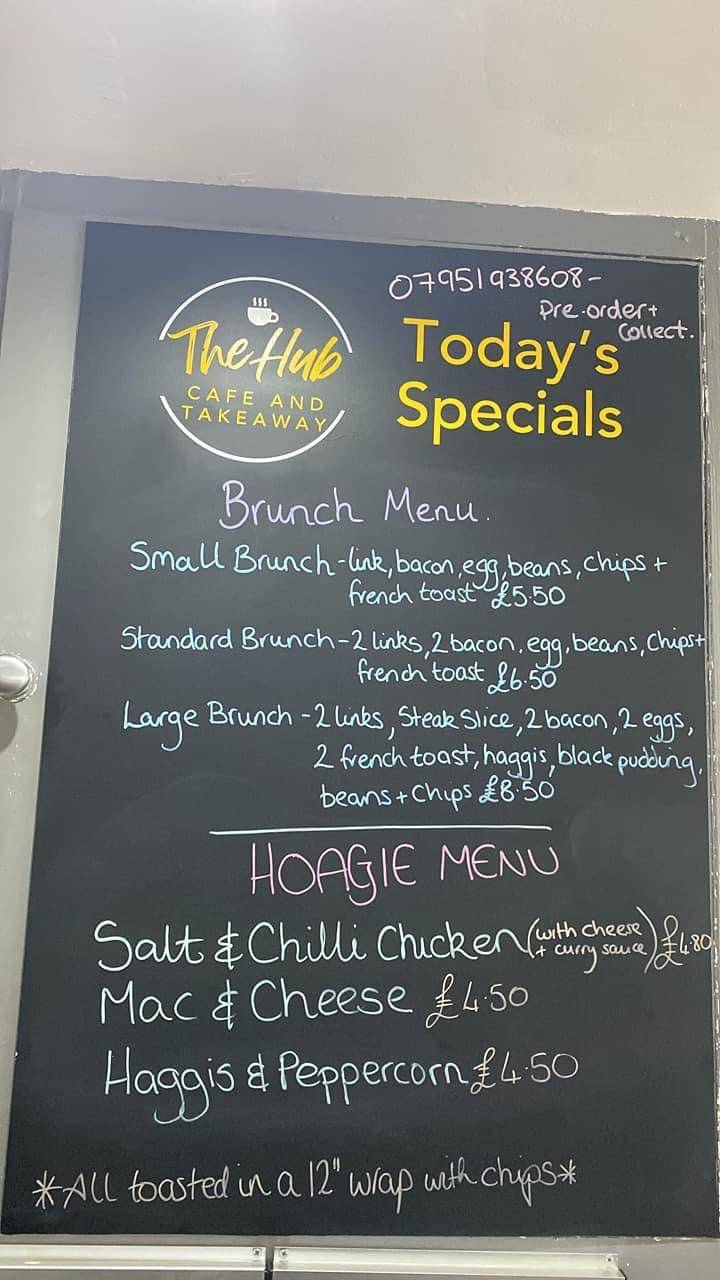 07951938608-
Pre-order +
Collect.
The Hub
CAFE AND
TAKEAWAY
Today's
Specials
Brunch Menu.
Small Brunch - link, bacon, egg, beans, chips +
french toast £5.50
Standard Brunch - 2 links, 2 bacon, egg, beans, chips +
french toast £6.50
Large Brunch - 2 links, Steak Slice, 2 bacon, 2 eggs,
2 french toast, haggis, black pudding,
beans + chips £8.50
HOAGIE MENU
Salt & Chilli Chicken (with cheese + curry sauce) £4.80
Mac & Cheese £4.50
Haggis & Peppercorn £4.50
*All toasted in a 12" wrap with chips*